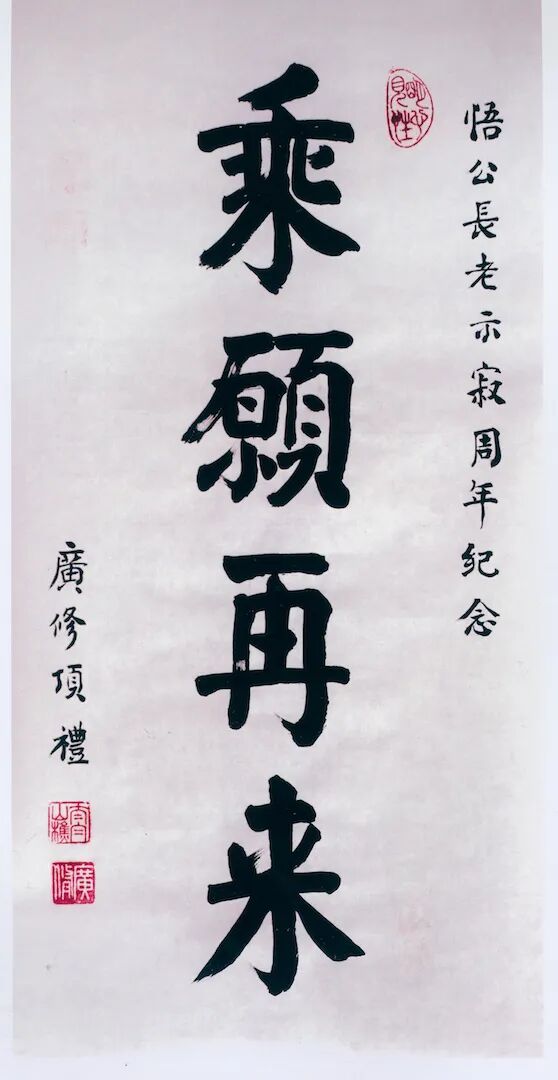 悟公長老示寂周年纪念
乘願再来
廣修頂禮